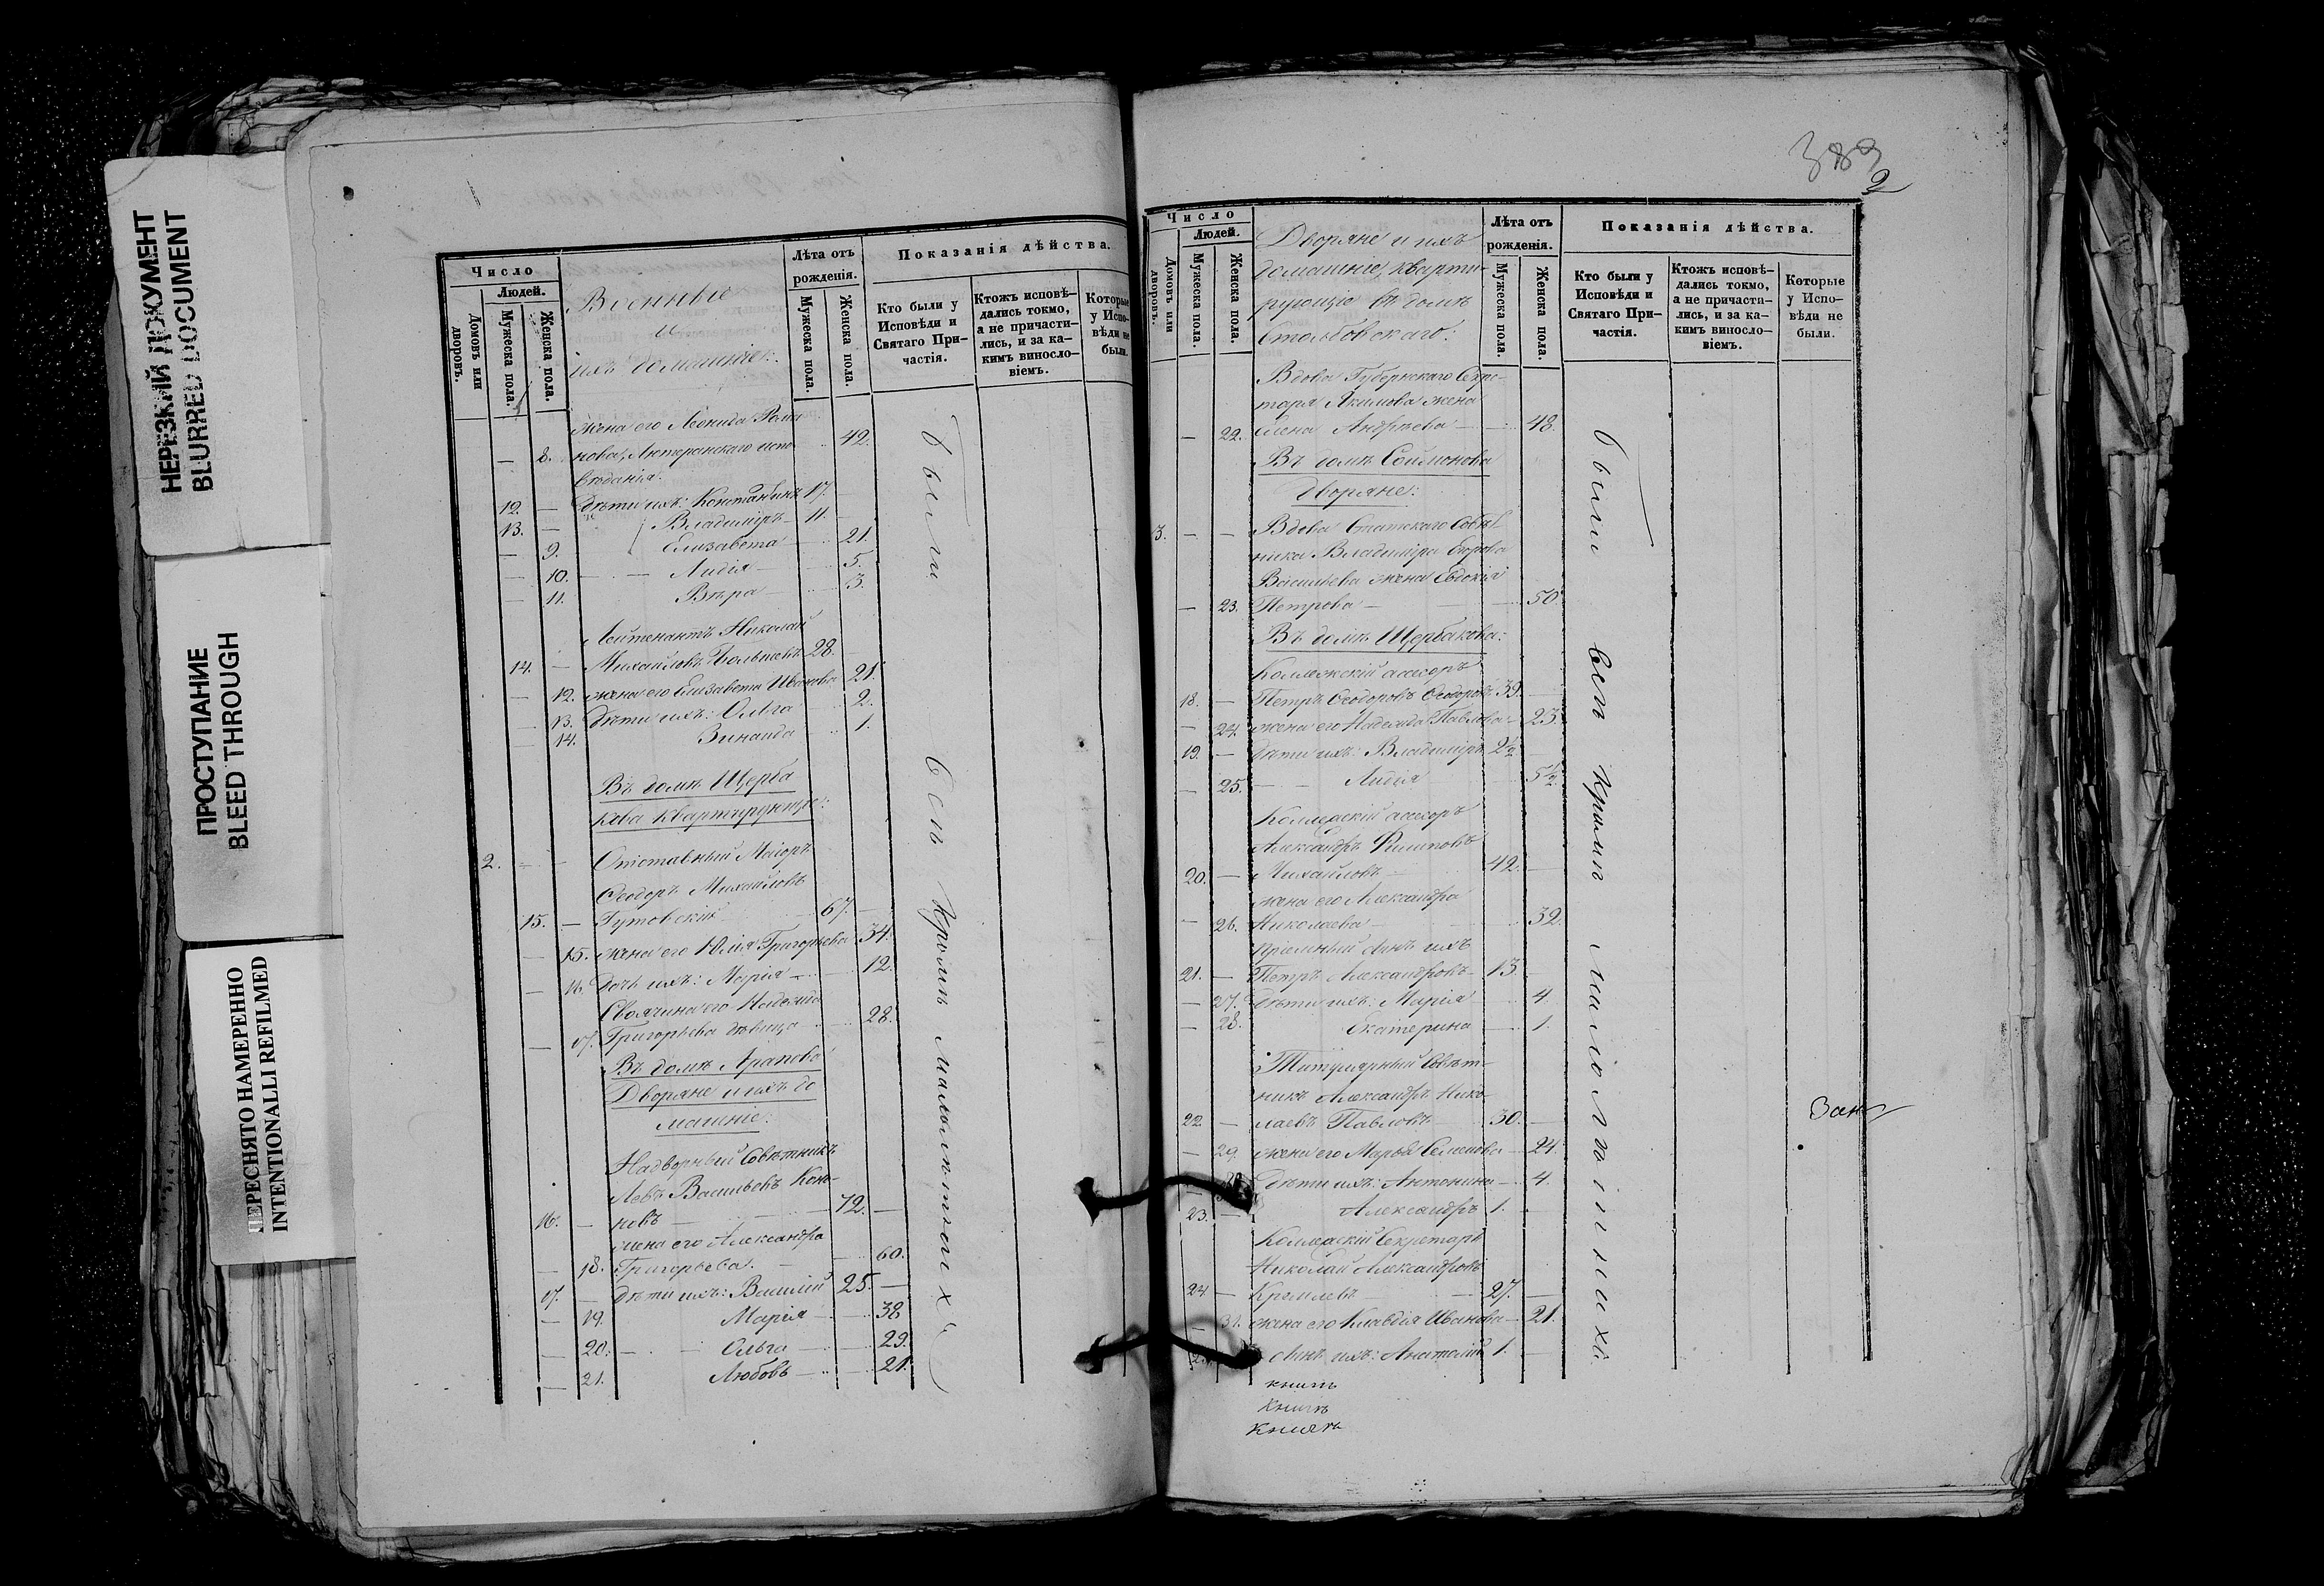 НЕРЕЗКИЙ ДОКУМЕНТ
BLURRED DOCUMENT
ПРОСТУПАНИЕ
BLEED THROUGH
ПЕРЕСНЯТО НАМЕРЕННО
INTENTIONALLI REFILMED
Число
Людей.
Домовъ или дворовъ.
Мужеска пола.
Женска пола.
Военные
и
ихъ домашніе:
Лѣта отъ рожденія.
Мужеска пола.
Женска пола.
Показанія дѣйства.
Кто были у Исповѣди и Святаго Причастія.
Ктожъ исповѣдались токмо, а не причастились, и за какимъ винословіемъ.
Которые у Исповѣди не были.
жена его Леонида Рома
— 8. нова, Лютеранскаго испо- 42.
вѣданія:
12. — дѣти ихъ: Константинъ 17.
13. — Владиміръ 11.
— 9. Елизавета 21.
— 10. Лидія 5.
— 11. Вѣра 3.
Лейтенантъ Николай
14. — Михайловъ 28.
— 12. жена его Елизавета Иванова 21.
— 13. дѣти ихъ: Ольга 2.
— 14. Зинаида 1.
Въ домѣ Щерба
кова квартирующіе:
2. — — Отставный Маіоръ
Ѳеодоръ Михайловъ
15. — Гутовскій 67.
— 15. жена его Юлія Григорьева 34.
— 16. дочь ихъ: Марія 12.
Своячина его Надежда
— 17. Григорьева дѣвица 28.
Въ домѣ Арапова
Дворяне и ихъ до
машніе:
Надворный Совѣтникъ
Левъ Васильевъ Коно-
16. — новъ 72. —
жена его Александра
— 18. Григорьева. 60.
17. — дѣти ихъ: Василій 25. —
— 19. Марія 38
— 20. Ольга 29.
— 21. Любовь 21.
были
всѣ кромѣ малолѣтнихъ
389
2
Число
Людей.
Домовъ или дворовъ.
Мужеска пола.
Женска пола.
Дворяне и ихъ
домашніе, кварти-
рующіе въ домѣ
Столбовскаго:
Лѣта отъ рожденія.
Мужеска пола.
Женска пола.
Показанія дѣйства.
Кто были у Исповѣди и Святаго Причастія.
Ктожъ исповѣдались токмо, а не причастились, и за какимъ винословіемъ.
Которые у Исповѣди не были.
Вдова Губернскаго Секре-
таря Якимова жена
— 22. Елена Андреева 48.
Въ домѣ Соймонова
дворяне:
3. — — Вдова Статскаго Совѣт
ника Владиміра Егорова
Васильева жена Евдокія
— 23. Петрова 50.
Въ домѣ Щербакова:
Коллежскій ассесоръ
18. — Петръ Ѳеодоровъ Ѳеодоровъ 39.
— 24. жена его Надежда Павлова 23.
19. — дѣти ихъ: Владиміръ 2½
— 25. Лидія 5½
Коллежскій ассесоръ
Александръ Филиповъ
20. — Михайловъ 42. —
жена его Александра
— 26. Николаева 32.
пріемный сынъ ихъ
21. — Петръ Александровъ 13
— 27. дѣти ихъ: Марія 4.
— 28. Екатерина 1.
Титулярный Совѣт-
никъ Александръ Нико-
22. — лаевъ Павловъ 30. —
— 29. жена его Марѳа Семенова 24.
дѣти ихъ: Антонина 4.
23. — Александръ 1.
Коллежскій Секретарь
Николай Александровъ
24. — Кремлевъ 27. —
— 31. жена его Клавдія Иванова 21.
сынъ ихъ: Анатолій 1. —
были
всѣ кромѣ малолѣтнихъ.